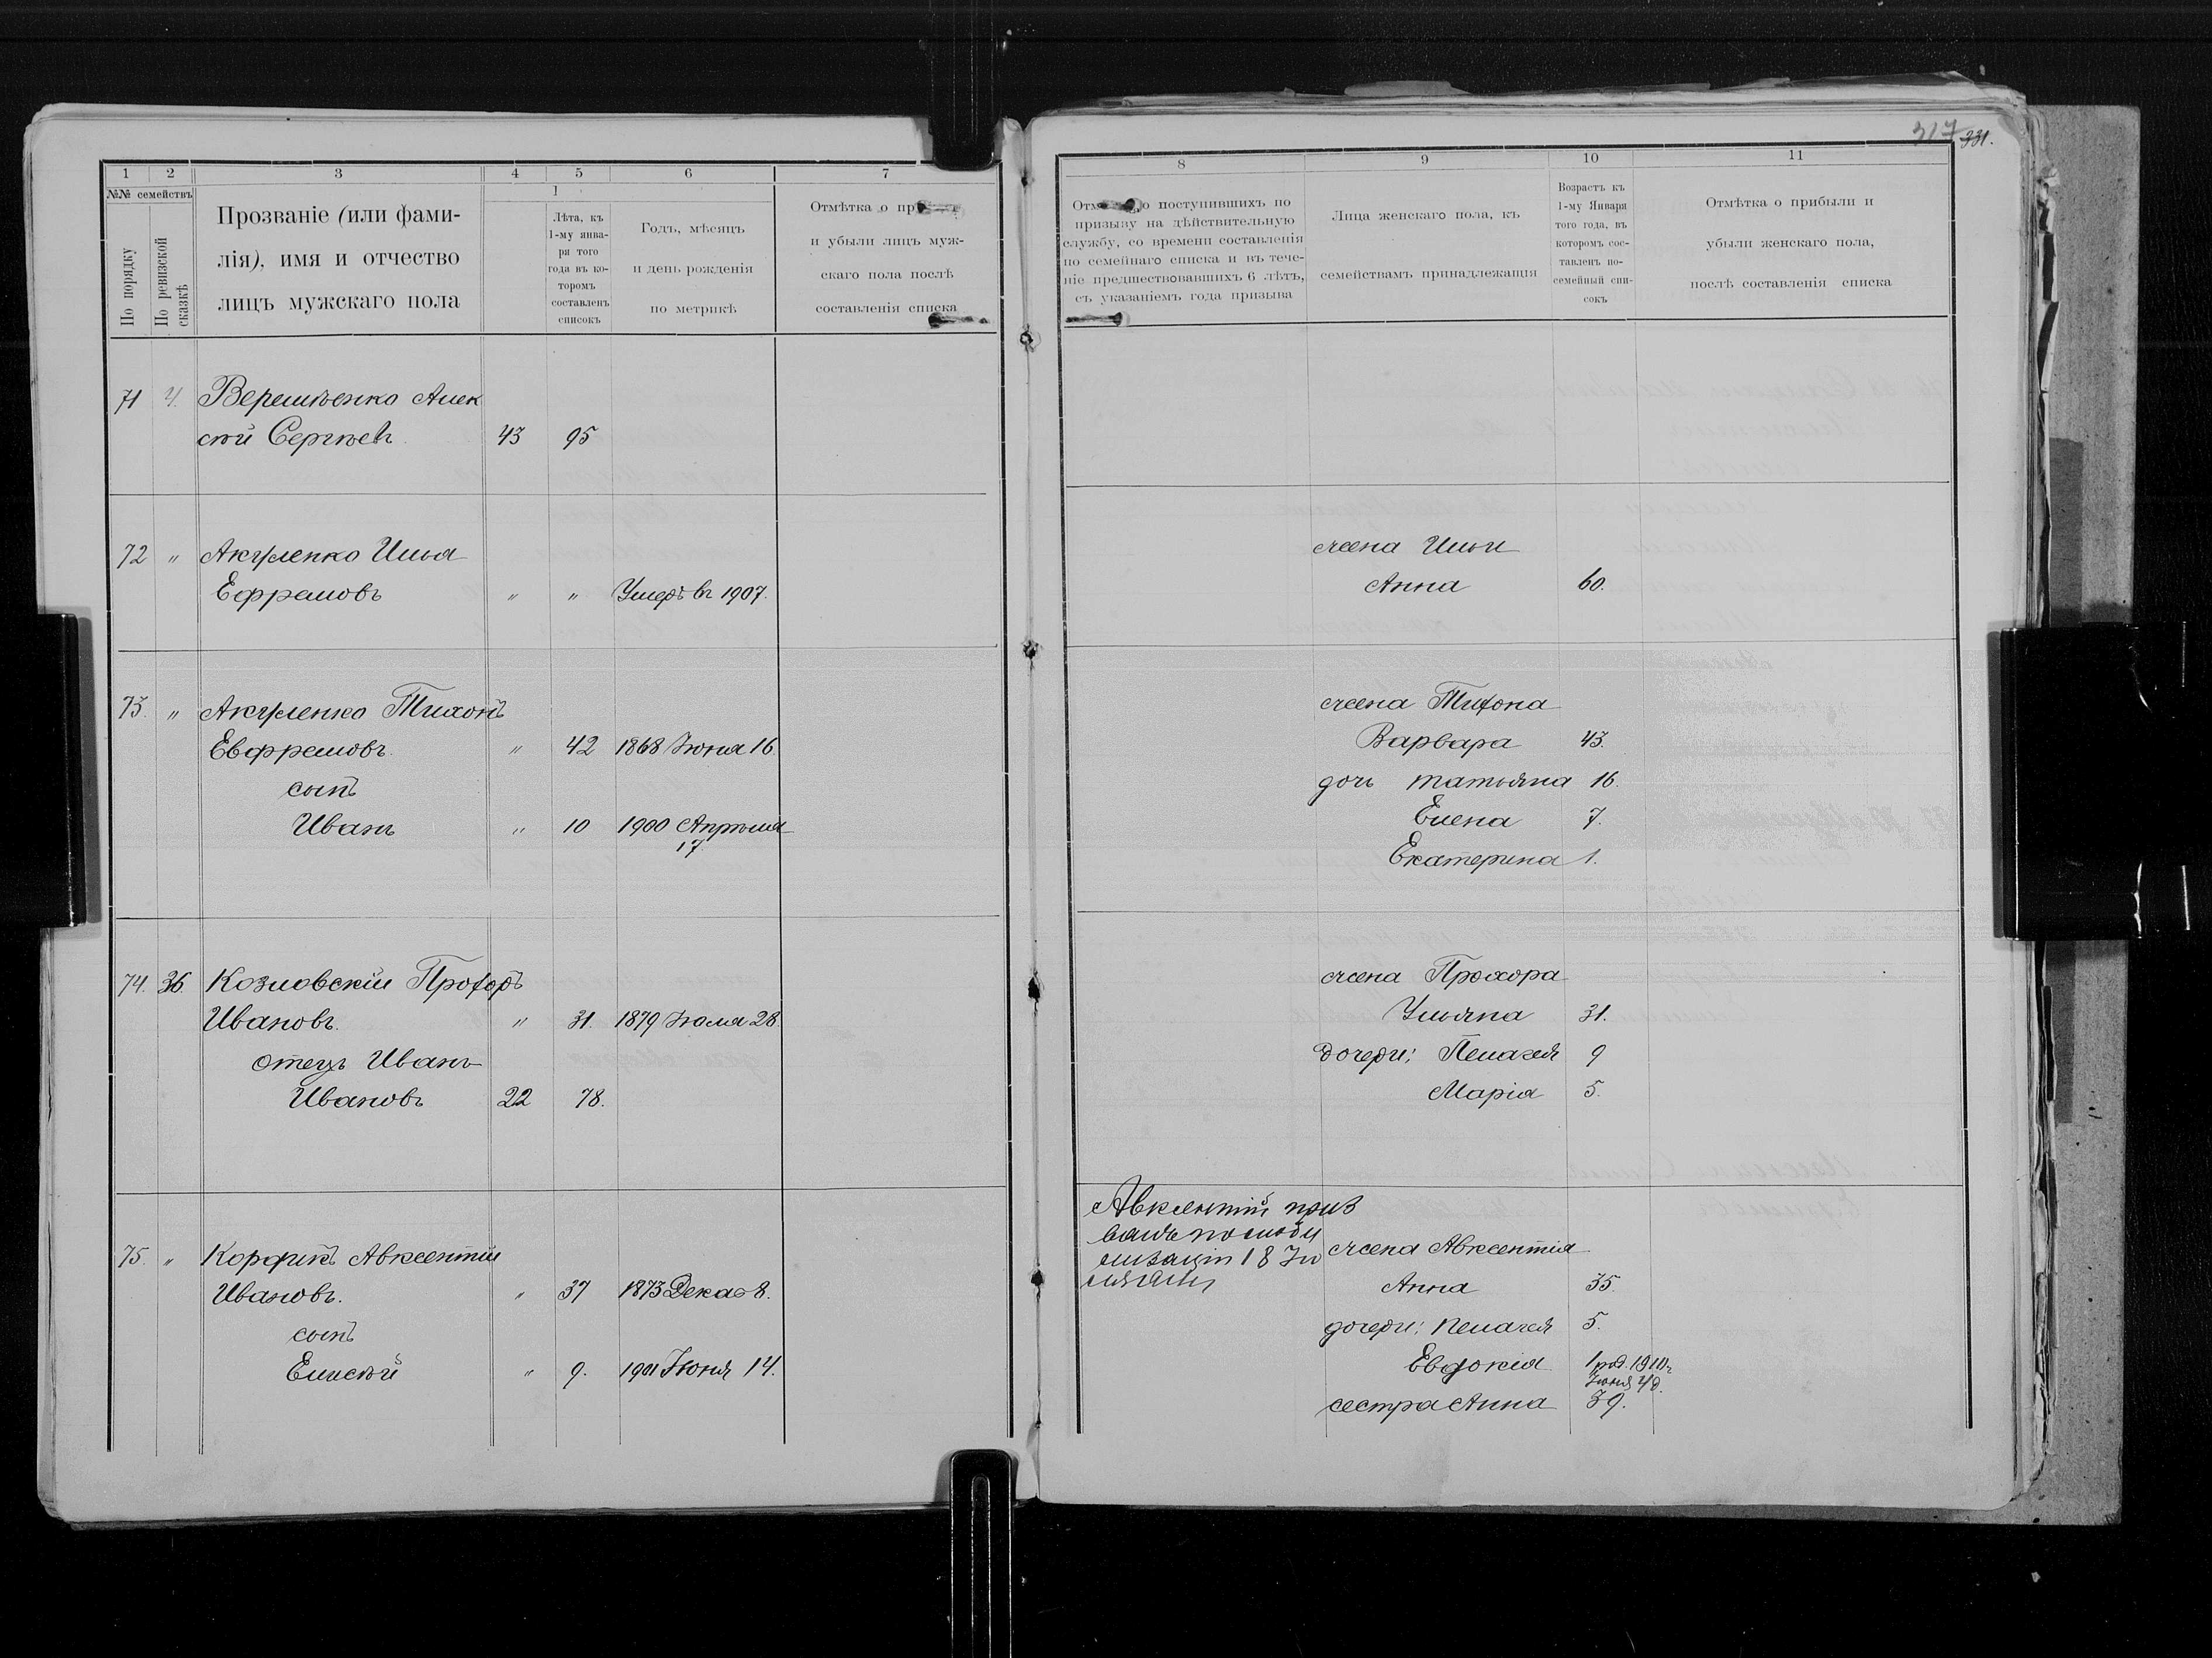 317 331.
1 2 3 4 5 6 7
№№ семействъ
По порядку
По ревизской сказкѣ
Прозваніе (или фами-
лія), имя и отчество
лицъ мужскаго пола
1
Лѣта, къ
1-му янва-
ря того
года въ ко-
торомъ
составленъ
списокъ
Годъ, мѣсяцъ
и день рожденія
по метрикѣ
Отмѣтка о
и убыли лицъ муж-
скаго пола послѣ
составленія списка
8 9 10 11
о поступившихъ по
призыву на дѣйствительную
службу, со времени составленія
по семейнаго списка и въ тече-
ніе предшествовавшихъ 6 лѣтъ,
съ указаніемъ года призыва
Лица женскаго пола, къ
семействамъ принадлежащія
Возрастъ къ
1-му Января
того года, въ
которомъ сос-
тавленъ по-
семейный спи-
сокъ
Отмѣтка о прибыли и
убыли женскаго пола,
послѣ составленія списка
71 4. Веремѣенко Алек
сѣй Сергѣевъ 43 95
72 " Акуленко Илья
Ефремовъ " " Умеръ въ 1907.
жена Ильи
Анна 60.
73. " Акуленко Тихонъ
Евфремовъ. " 42 1868 Іюня 16.
сынъ
Иванъ " 10 1900 Апрѣля
17.
жена Тихона
Варвара 43.
дочь Татьяна 16.
Елена 7.
Екатерина 1.
74. 36. Козловскій Прохоръ
Ивановъ. " 31. 1879 Іюля 28.
отецъ Иванъ
Ивановъ 22 78.
жена Прохора
Ульяна 31.
дочери: Пелагея 9
Марія 5.
75. " Корфикъ Авксентій
Ивановъ. " 37 1873 Дека 8.
сынъ
Елисѣй " 9. 1901 Іюня 14.
Авксентій приз
ванъ по моби
лизаціи 18 Ію
жена Авксентія
Анна 35.
дочери: Пелагея 5.
Евдокія 1 род. 1910г.
Іюня 4д.
сестра Анна 39.